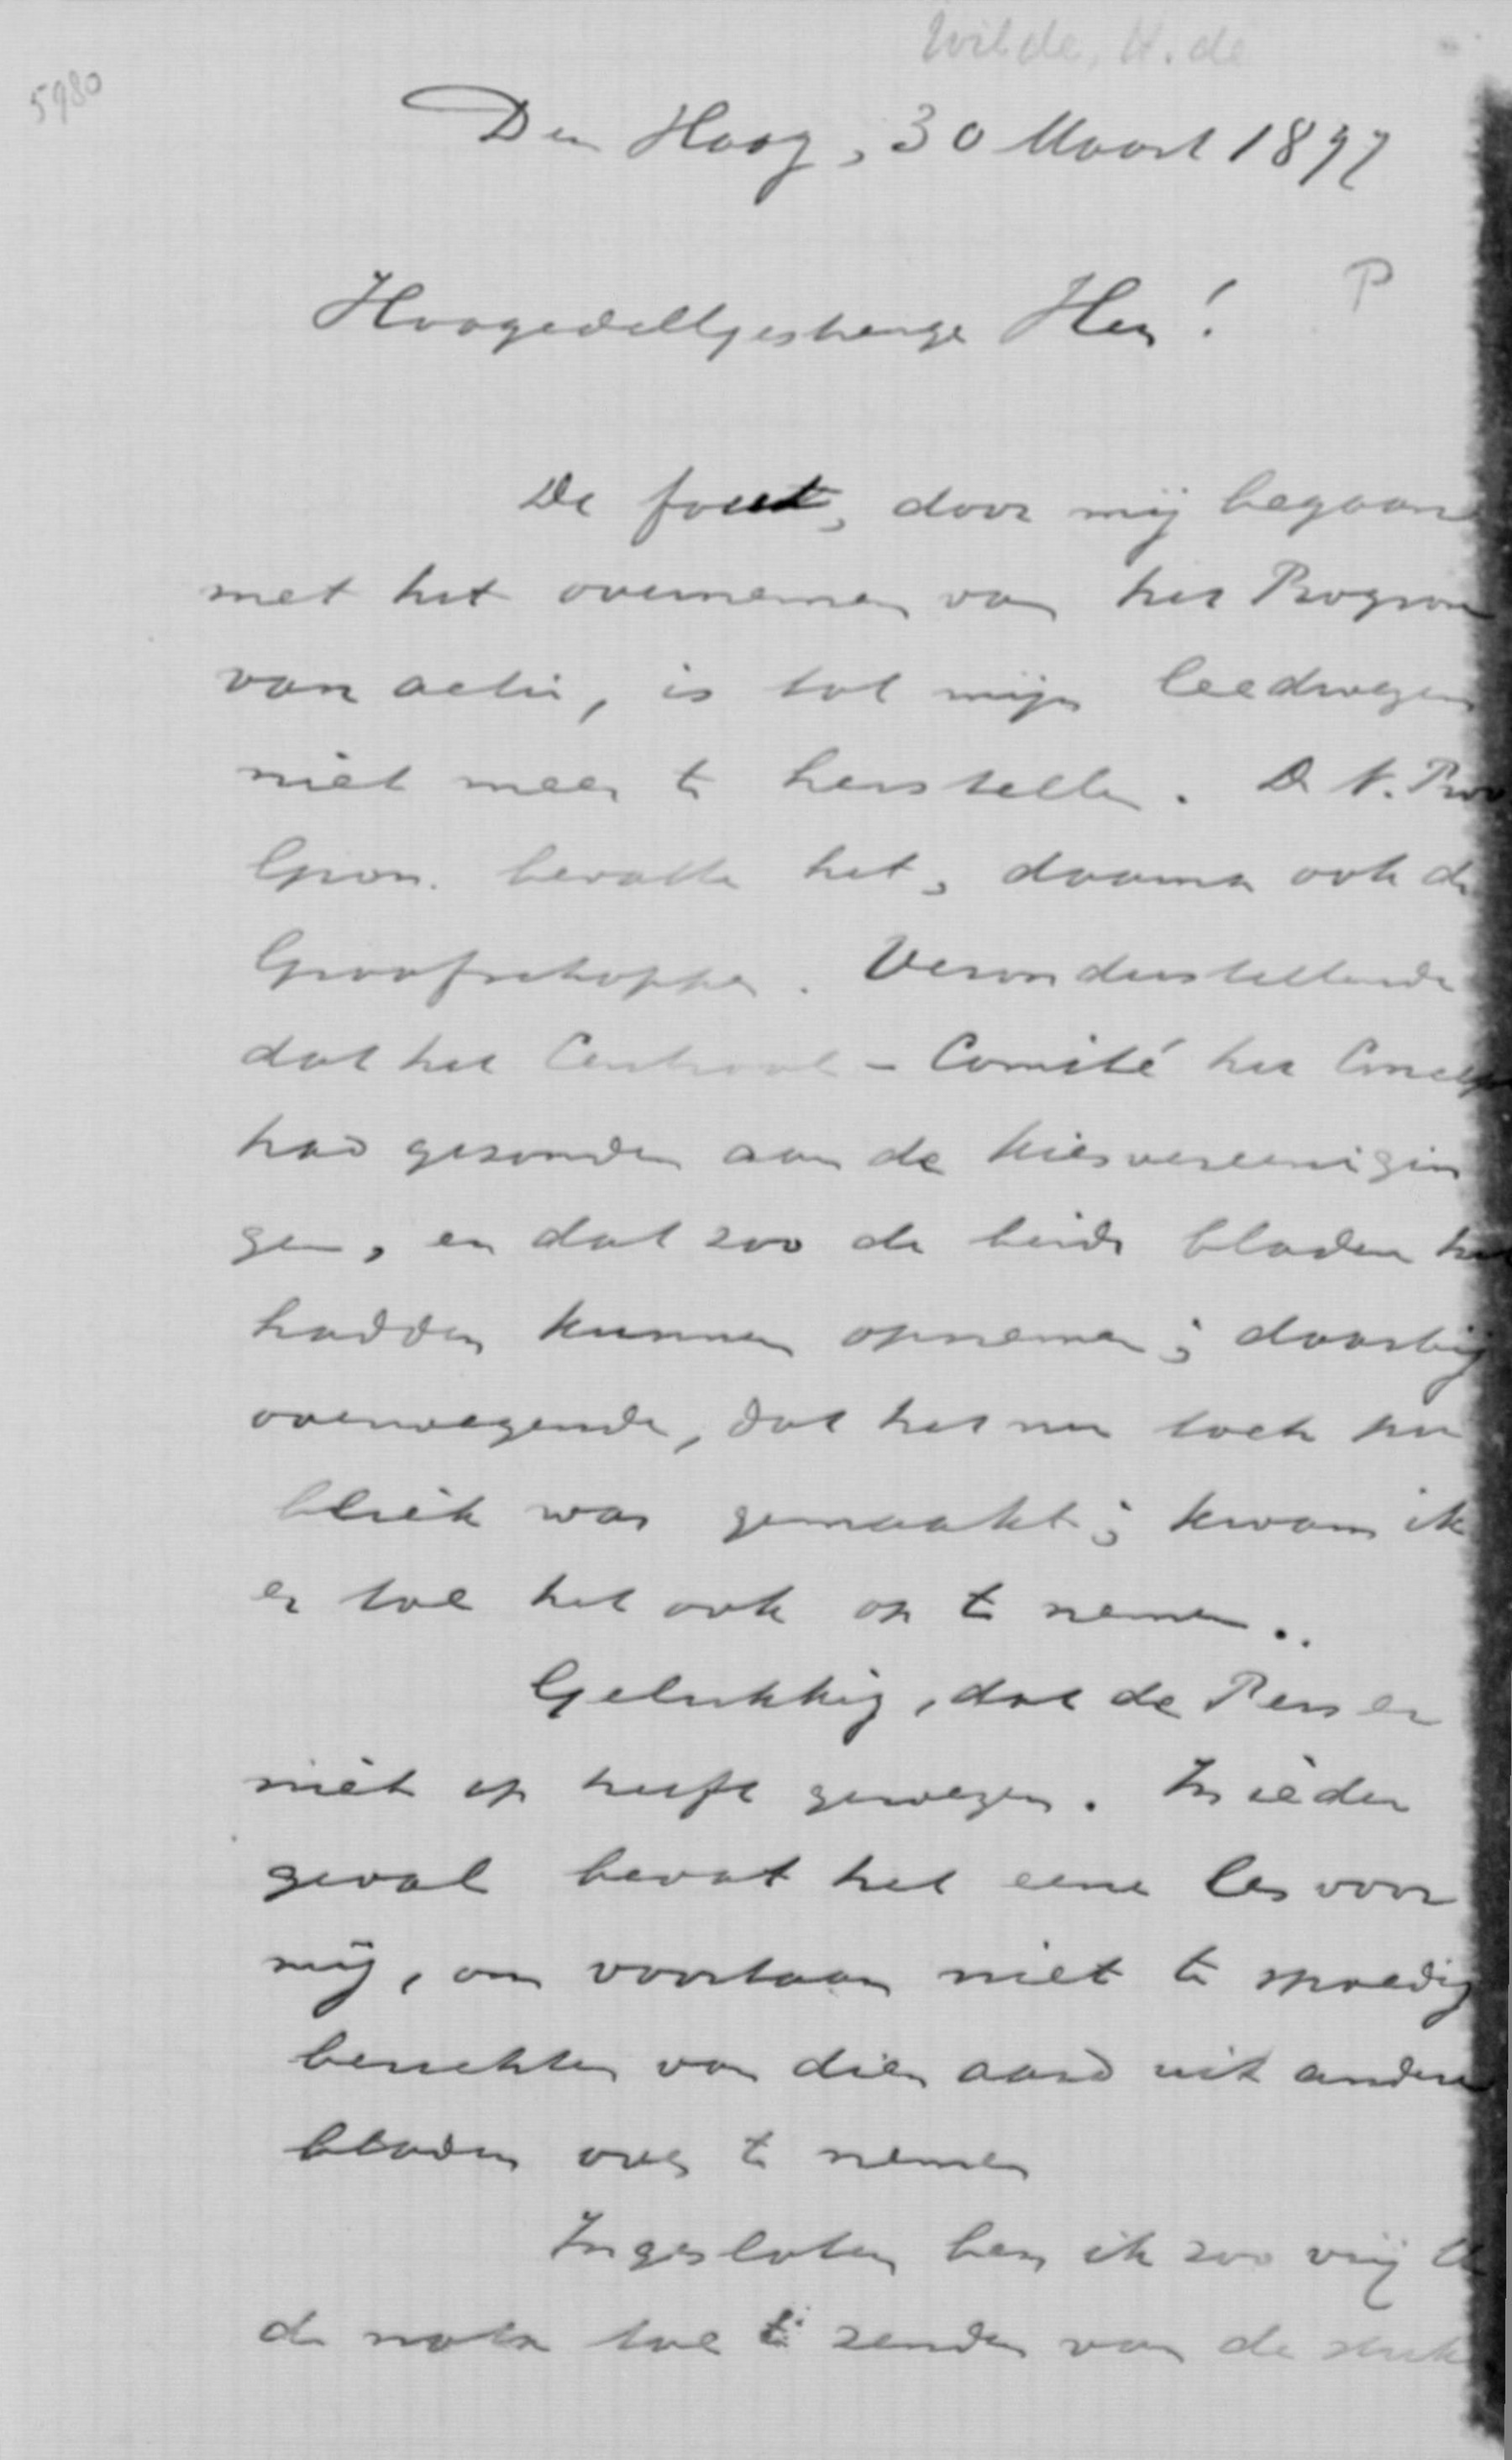 Wilde, H. de
5980
Den Haag, 30 Maart 1897
P
Hoogedelgestrenge Heer!
De fout, door mij begaan
met het overnemen van het Program
van actie, is tot mijn leedwezen
niet meer te herstellen. De N. Prov
Gron. bevatte het, daarna ook de
Graafschapper. Veronderstellende
dat het Centraal-Comité het Concept
had gezonden aan de kiesvereenigin
gen, en dat zoo de beide bladen het
hadden kunnen opnemen; daarbij
overwegende, dat het nu toch pu
bliek was gemaakt; kwam ik
er toe het ook op te nemen..
Gelukkig, dat de Pers er
niet op heeft gewezen. In ieder
geval bevat het eene les voor
mij, om voortaan niet te spoedig
berichten van dien aard uit andere
bladen over te nemen
Ingesloten ben ik zoo vrij U
de nota toe te zenden van de